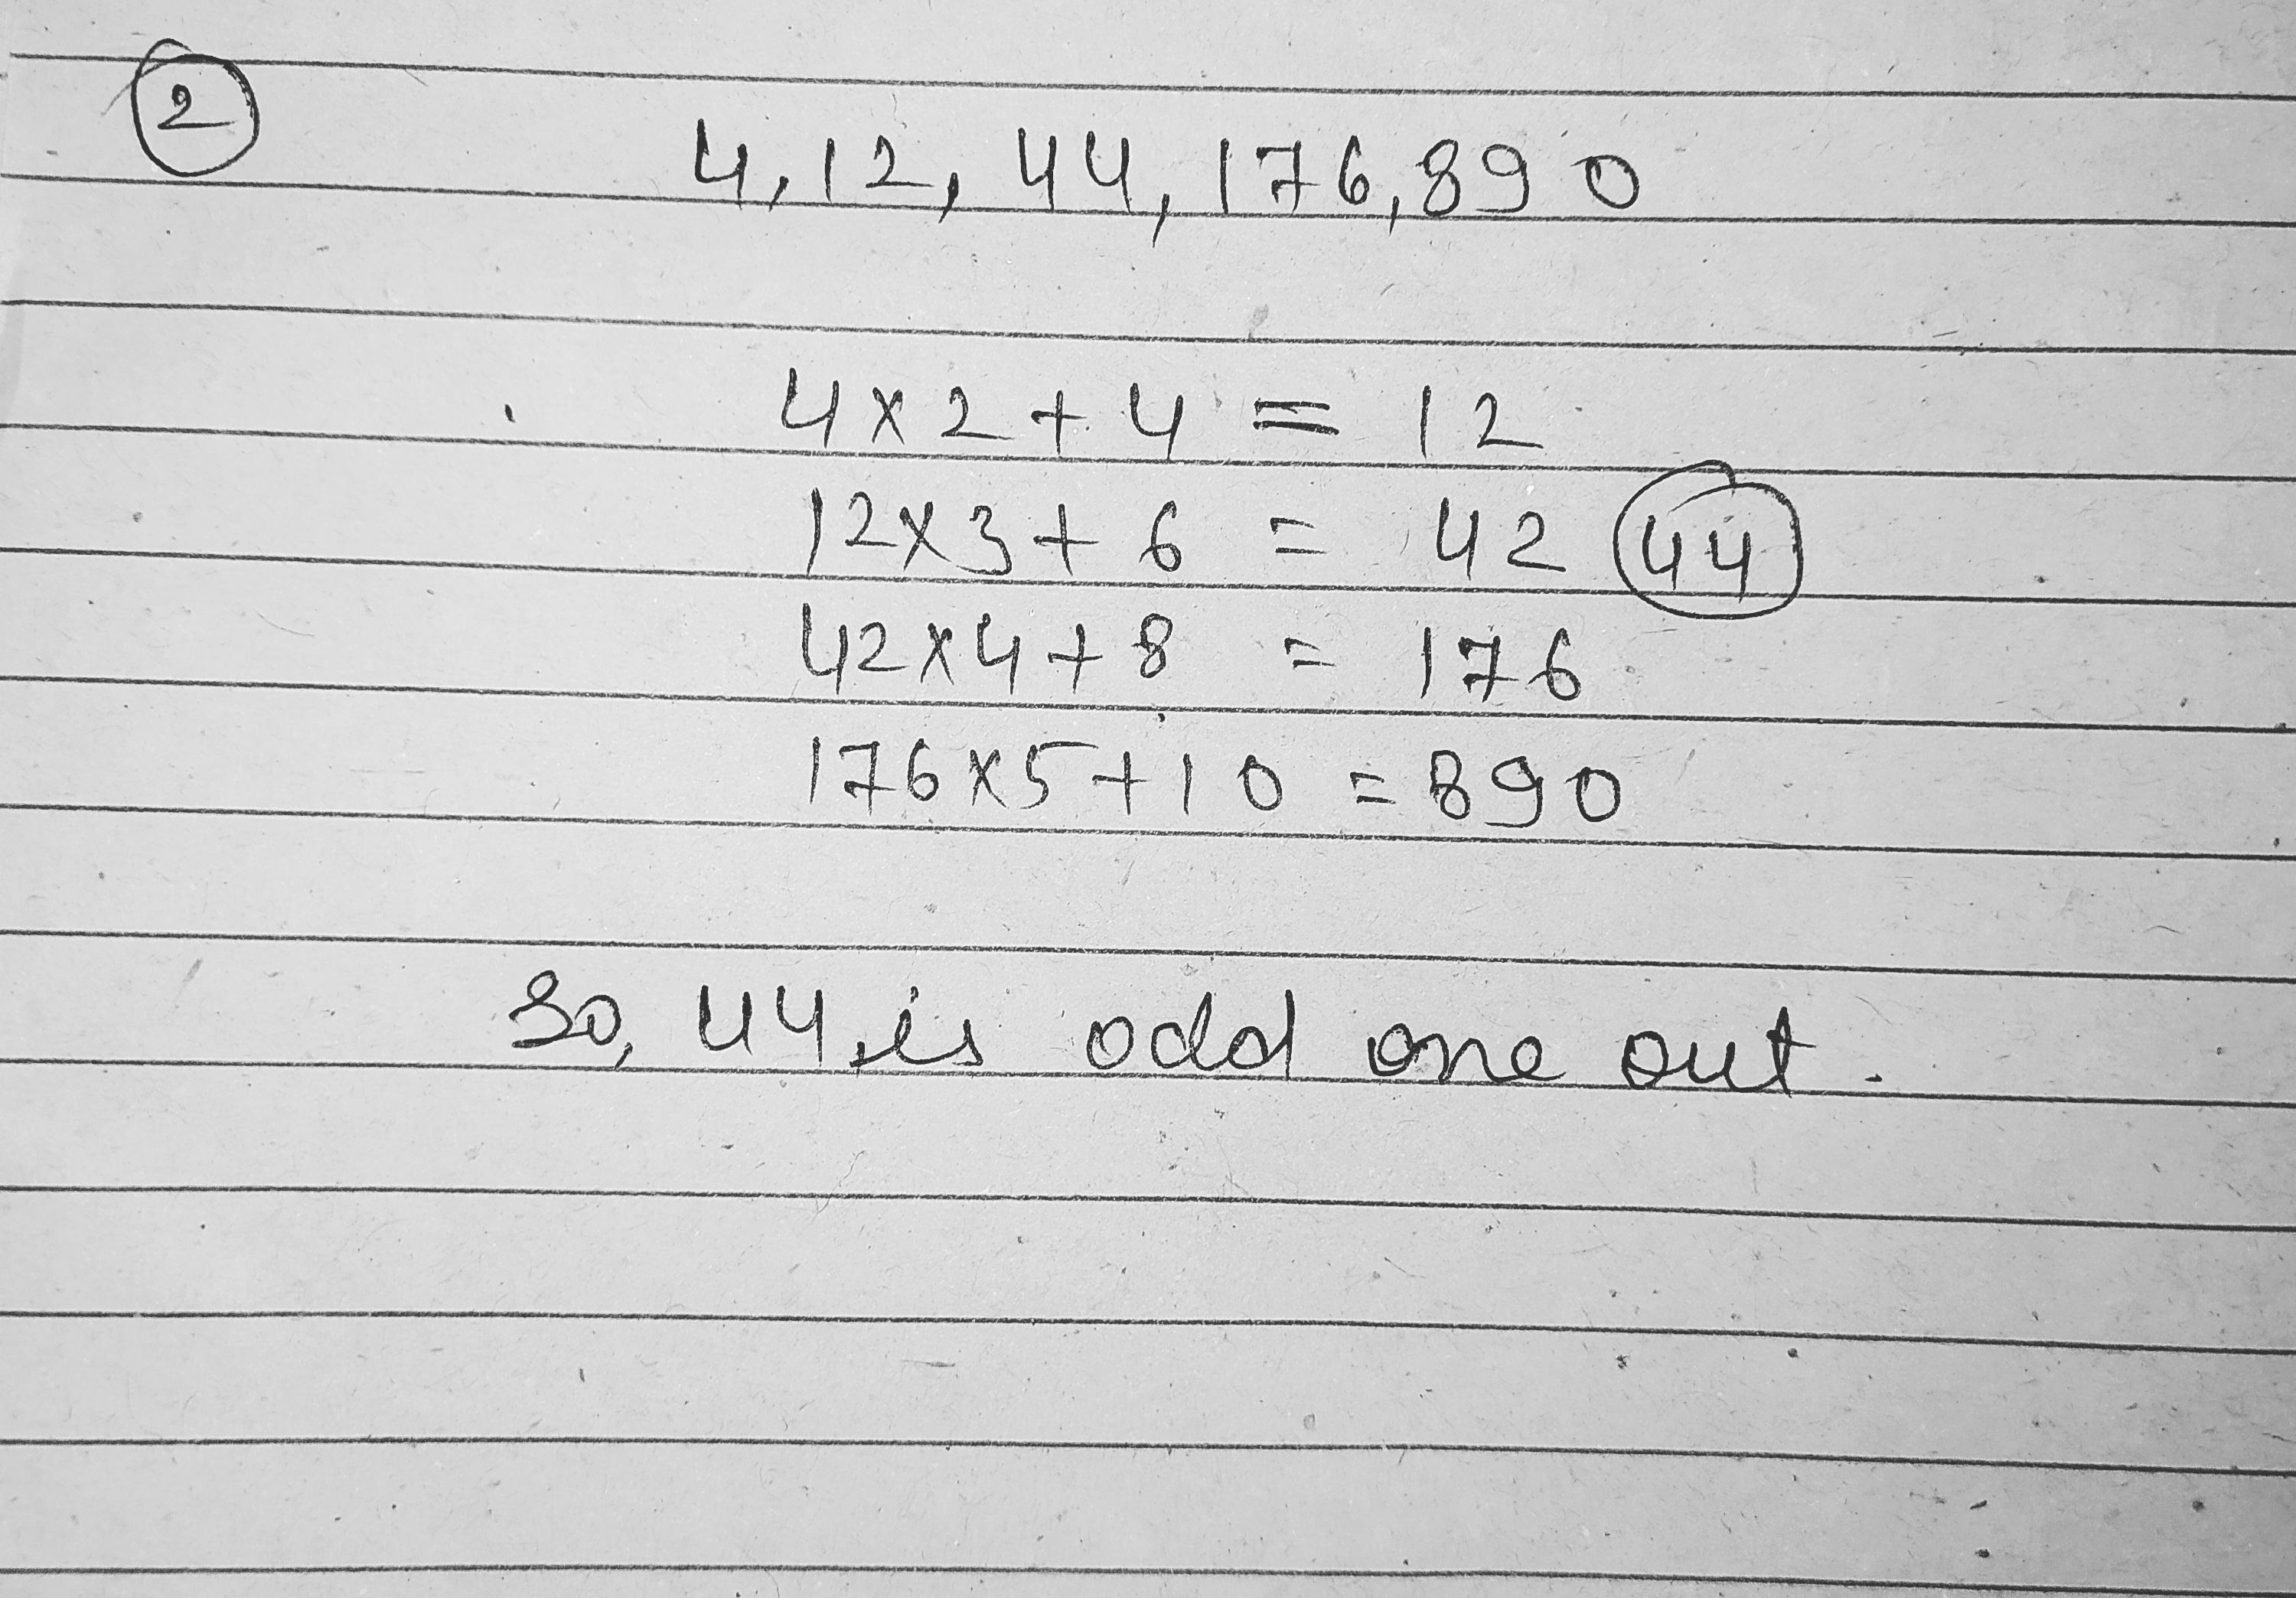 2
4, 12, 44, 176, 890
4 x 2 + 4 = 12
12 x 3 + 6 = 42 44
42 x 4 + 8 = 176
176 x 5 + 10 = 890
So, 44 is odd one out.